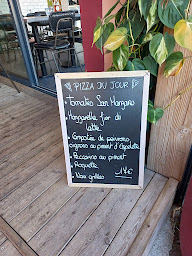 PIZZA DU JOUR
• Tomates San Marzano
• Mozzarella fior di
latte
• Compotée de poivrons,
oignons au piment d'Espelette
• Pecorino au piment
• Roquette
• Noix grillées 17€